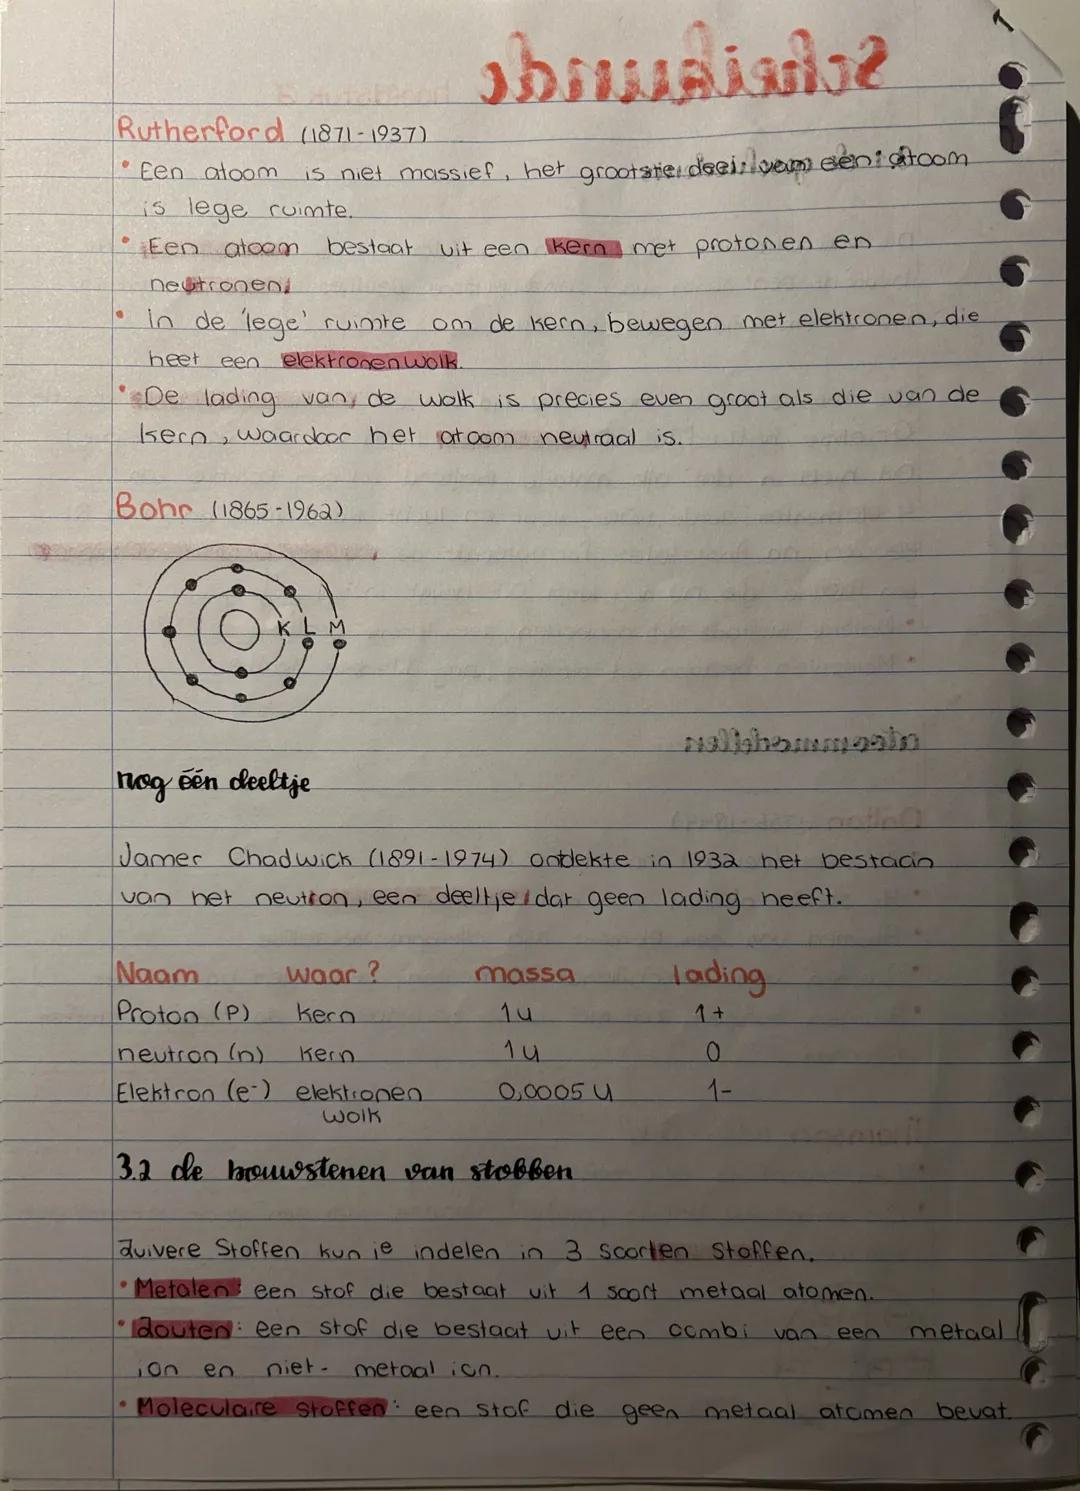 Rutherford (1871-1937)
• Een atoom is niet massief, het grootste deel van een atoom
is lege ruimte.
• Een atoom bestaat uit een kern met protonen en
neutronen.
• in de 'lege' ruimte om de kern, bewegen met elektronen, die
heet een elektronenwolk.
• De lading van de wolk is precies even groot als die van de
kern, waardoor het atoom neutraal is.
Bohr (1865-1962)
K L M
nog één deeltje
Jamer Chadwick (1891-1974) ontdekte in 1932 het bestaan
van het neutron, een deeltje dat geen lading heeft.
Naam waar? massa lading
Proton (P) Kern 1u 1+
neutron (n) Kern 1u 0
Elektron (e-) elektronen 0,0005 u 1-
wolk
3.2 de bouwstenen van stoffen
Zuivere Stoffen kun je indelen in 3 soorten stoffen.
• Metalen: een stof die bestaat uit 1 soort metaal atomen.
• Zouten: een stof die bestaat uit een combi van een metaal
ion en niet-metaal ion.
• Moleculaire stoffen: een stof die geen metaal atomen bevat